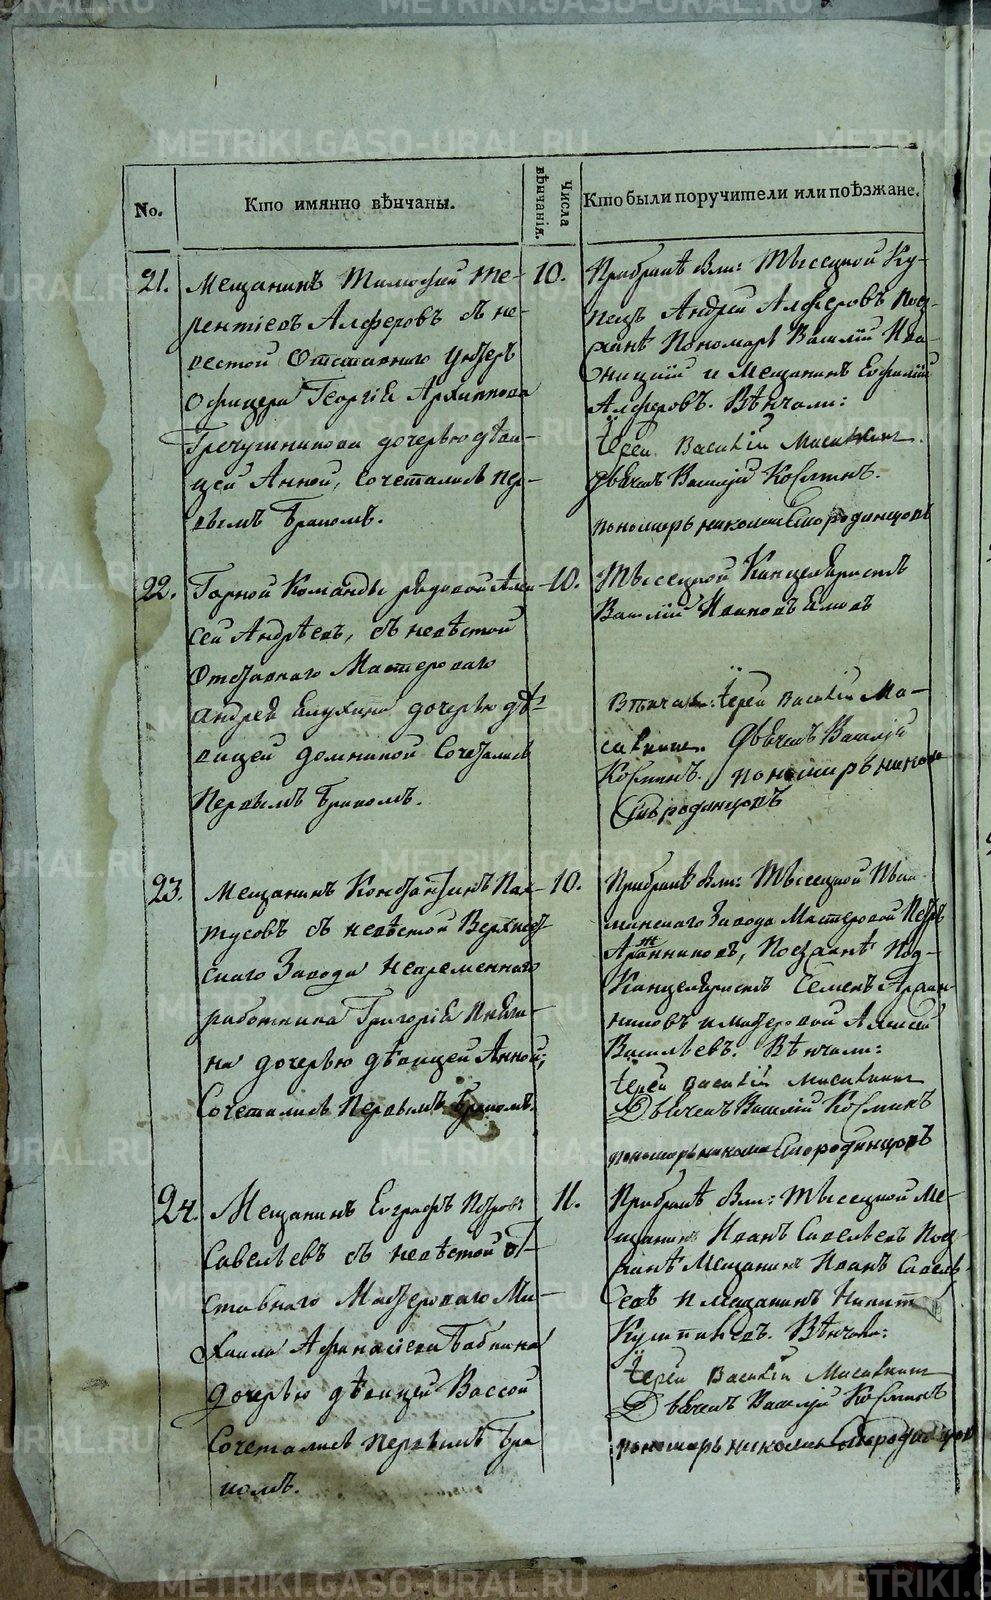 No.
Кто имянно вѣнчаны.
Числа вѣнчанія.
Кто были поручители или поѣзжане.
21.
Мещанинъ Тимофей Те-
рентіевъ Алферовъ съ не-
вестой Отставного Унтеръ
Офицера Георгія Архипова
Гречушникова дочерью дѣви-
цей Анной, Сочетались пер-
вымъ бракомъ.
10.
При бракѣ были: Тысецкой Ку-
пецъ Андрей Алферовъ Поез-
жанѣ Пономарь Василій
и Мещанинъ Ефимій
Алферовъ. Вѣнчали:
Іерей Василій
Дьячекъ Василій Косминъ.
пономарь николай Смородинцовъ
22.
Горной Команды рядовой Алек-
сей Андрѣевъ, съ невѣстой
Отставнаго Мастероваго
Андрея дочерью дѣ-
вицей Домникой Сочетались
Первымъ бракомъ.
10.
Тысецкой Канцеляристъ
Василій Ивановъ
Вѣнчали: Іерей Василій
Дьячекъ Василій
Косминъ. пономарь николай
Смородинцовъ
23.
Мещанинъ Константинъ Пах-
тусовъ съ невѣстой Верхнеу-
скаго Завода Непременнаго
работника Григорія
дочерью дѣвицей Анной,
Сочетались Первымъ бракомъ.
10.
При бракѣ были: Тысецкой
Завода Мастеровой Петръ
Поезжанѣ Под-
Канцеляристъ Семенъ
и мастеровой Алексей
Васильевъ. Вѣнчали:
Іерей Василій
Дьячекъ Василій Косминъ
пономарь николай Смородинцовъ
24.
Мещанинъ Евграфъ Петровъ
Савельевъ съ невѣстой От-
ставнаго Мастероваго Ми-
хаила Афанасіева Бабкина
дочерью дѣвицей Вассой
Сочетались первымъ бра
комъ.
11.
При бракѣ были: Тысецкой Ме-
щанинъ Иванъ Савельевъ Поез-
жанѣ Мещанинъ Иванъ Савель-
евъ и мещанинъ Никита
Вѣнчали:
Іерей Василій
Дьячекъ Василій Косминъ
пономарь николай Смородинцовъ
METRIKI.GASO-URAL.RU